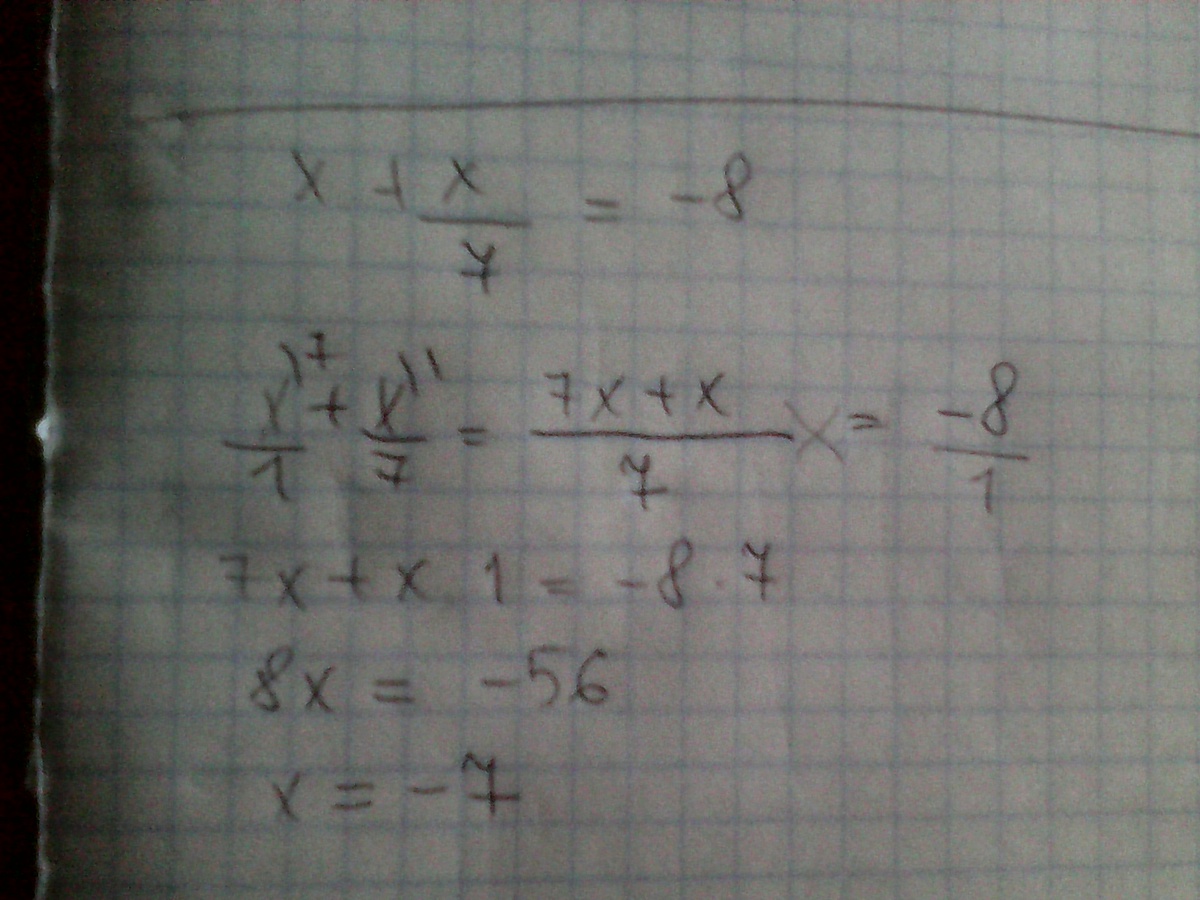 x + x/7 = -8
x⁾⁷/1 + x⁾¹/7 = 7x + x/7 X = -8/1
7x + x 1 = -8 · 7
8x = -56
x = -7